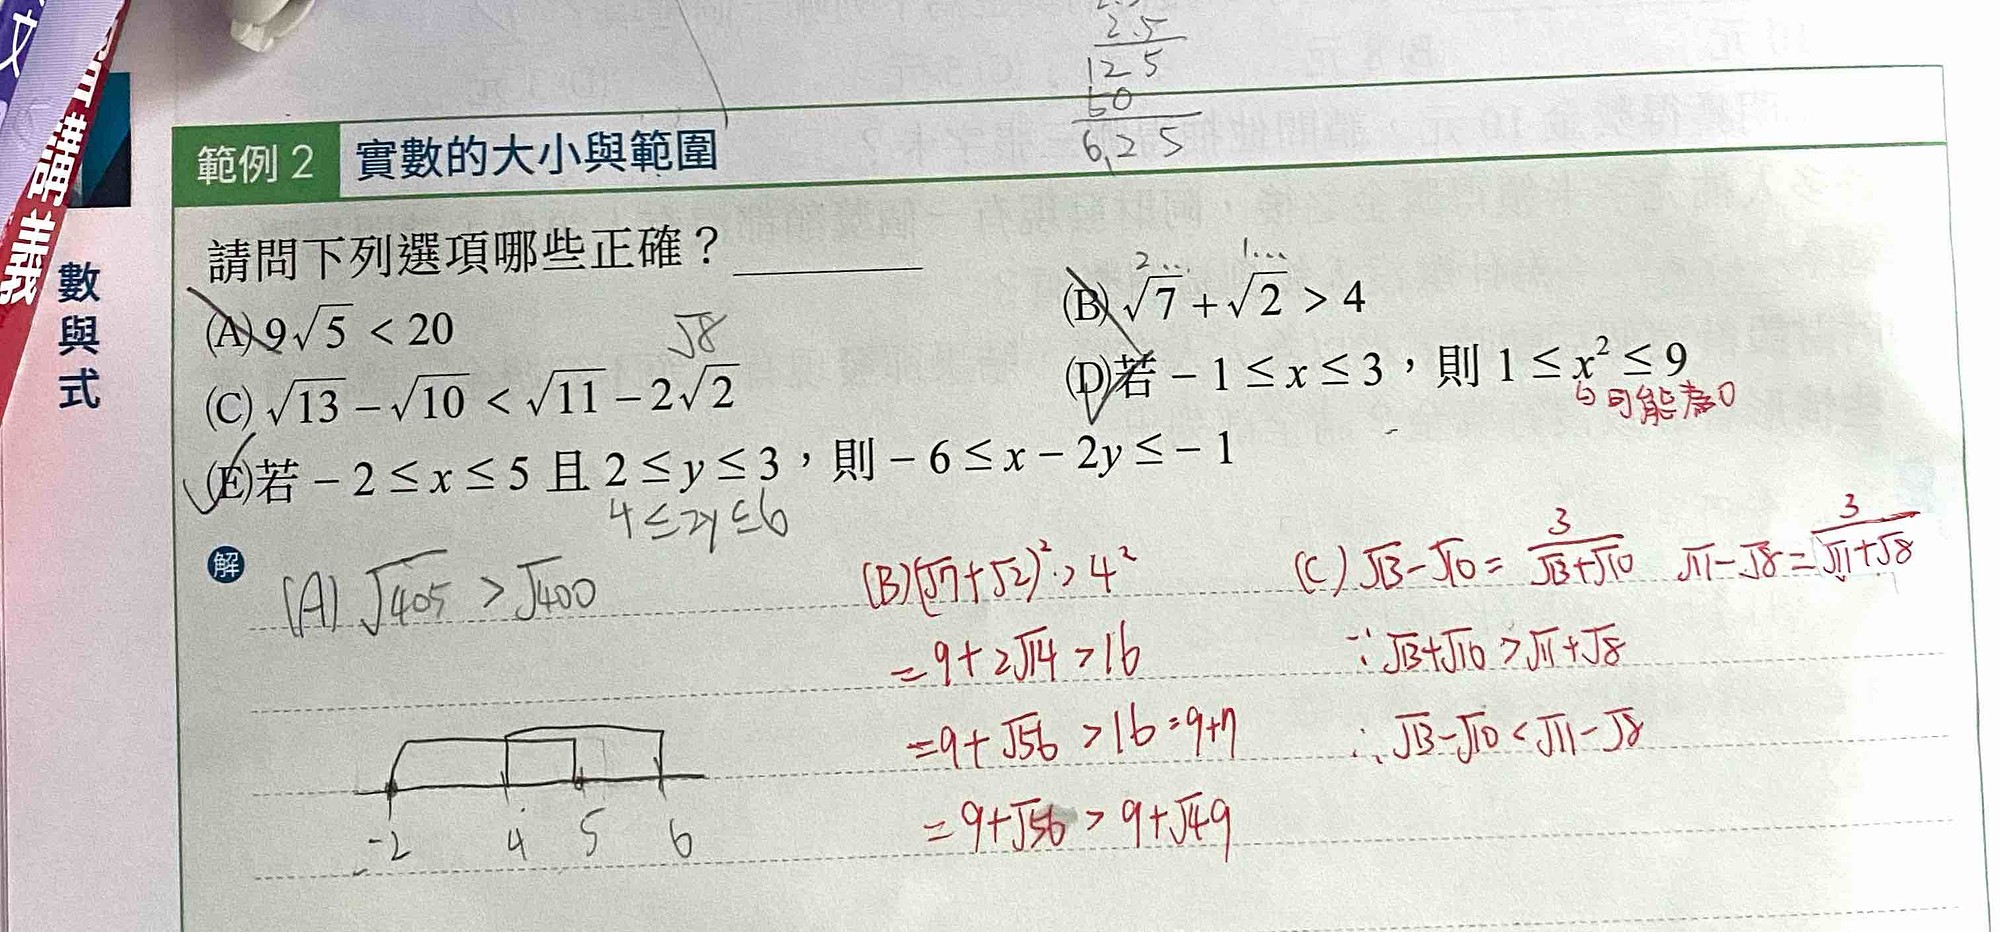 2.5
125
50
6,25
講義
數與式
範例 2 實數的大小與範圍
請問下列選項哪些正確？________
2… 1…
(A) 9√5 < 20 (B) √7 + √2 > 4
√8
(C) √13 − √10 < √11 − 2√2 (D)若 − 1 ≤ x ≤ 3，則 1 ≤ x² ≤ 9
可能為0
(E)若 − 2 ≤ x ≤ 5 且 2 ≤ y ≤ 3，則 − 6 ≤ x − 2y ≤ − 1
4 ≤ 2y ≤ 6
解
(A) √405 > √400
-2 4 5 6
(B) (√7+√2)² > 4²
= 9+2√14 > 16
= 9+√56 > 16 = 9+7
= 9+√56 > 9+√49
(C) √13−√10 = 3/(√13+√10) √11−√8 = 3/(√11+√8)
∵ √13+√10 > √11+√8
∴ √13−√10 < √11−√8